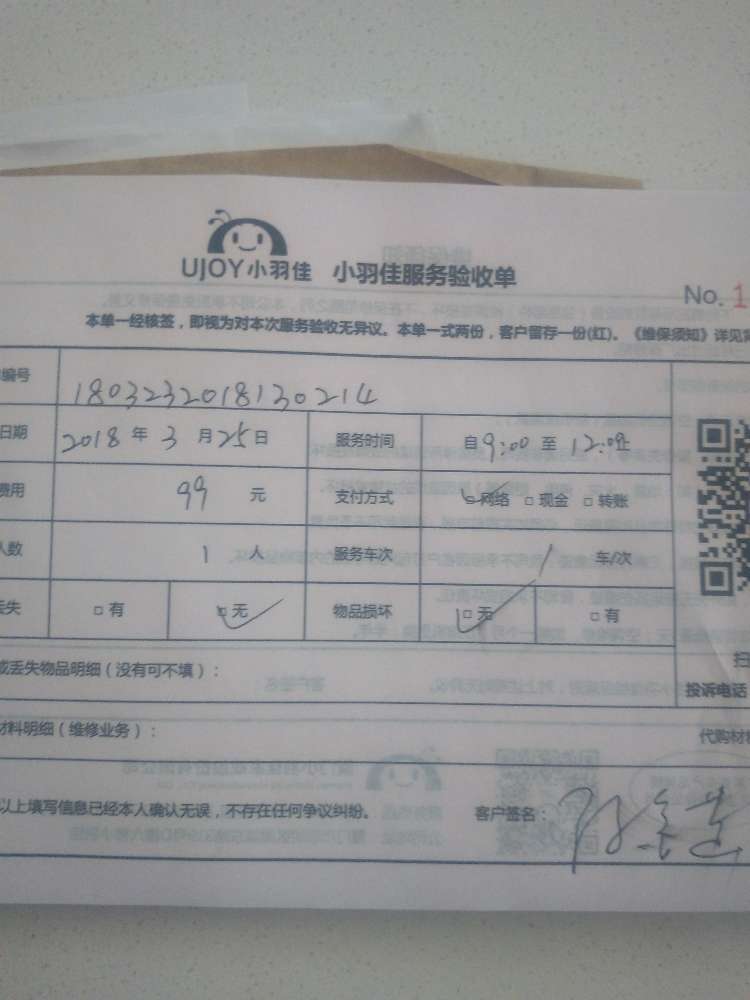 UJOY小羽佳 小羽佳服务验收单
No. 1
本单一经核签，即视为对本次服务验收无异议。本单一式两份，客户留存一份(红)。《维保须知》详见背
编号 1803232018130214
日期 2018 年 3 月 25 日 服务时间 自 9:00 至 12:00止
费用 99 元 支付方式 □网络 □现金 □转账
人数 1 人 服务车次 1 车/次
丢失 □有 □无 物品损坏 □无 □有
或丢失物品明细（没有可不填）：
扫
投诉电话
材料明细（维修业务）： 代购材料
以上填写信息已经本人确认无误，不存在任何争议纠纷。 客户签名：